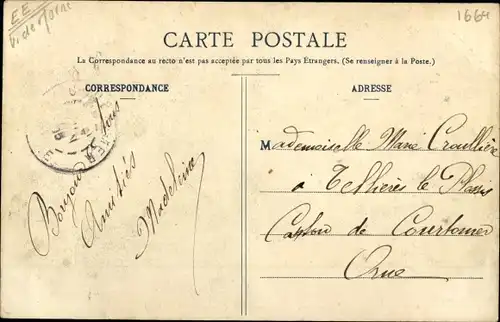 EE
1664
CARTE POSTALE
La Correspondance au recto n'est pas acceptée par tous les Pays Etrangers. (Se renseigner à la Poste.)
CORRESPONDANCE
Bonjour à tous
Amitiés
Madeleine
ADRESSE
Mademoiselle Marie Croullière
à Tellières le Plessis
Canton de Courtomer
Orne